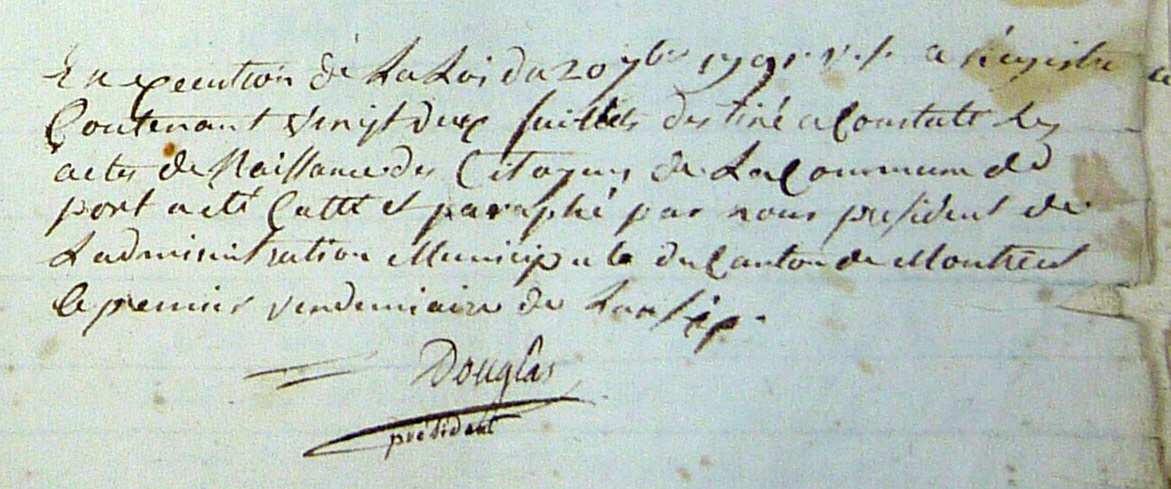 En execution de La Loi du 20 7bre 1791 v. s. a Registre
Contenant vingt deux feuillets destiné a Constatt Les
actes de Naissance des Citoyens de La Commune de
port a été Cotté et paraphé par nous president de
Ladministration Municipale du Canton de Montréal
le premier vendemiaire de Lan six.
Douglas
président